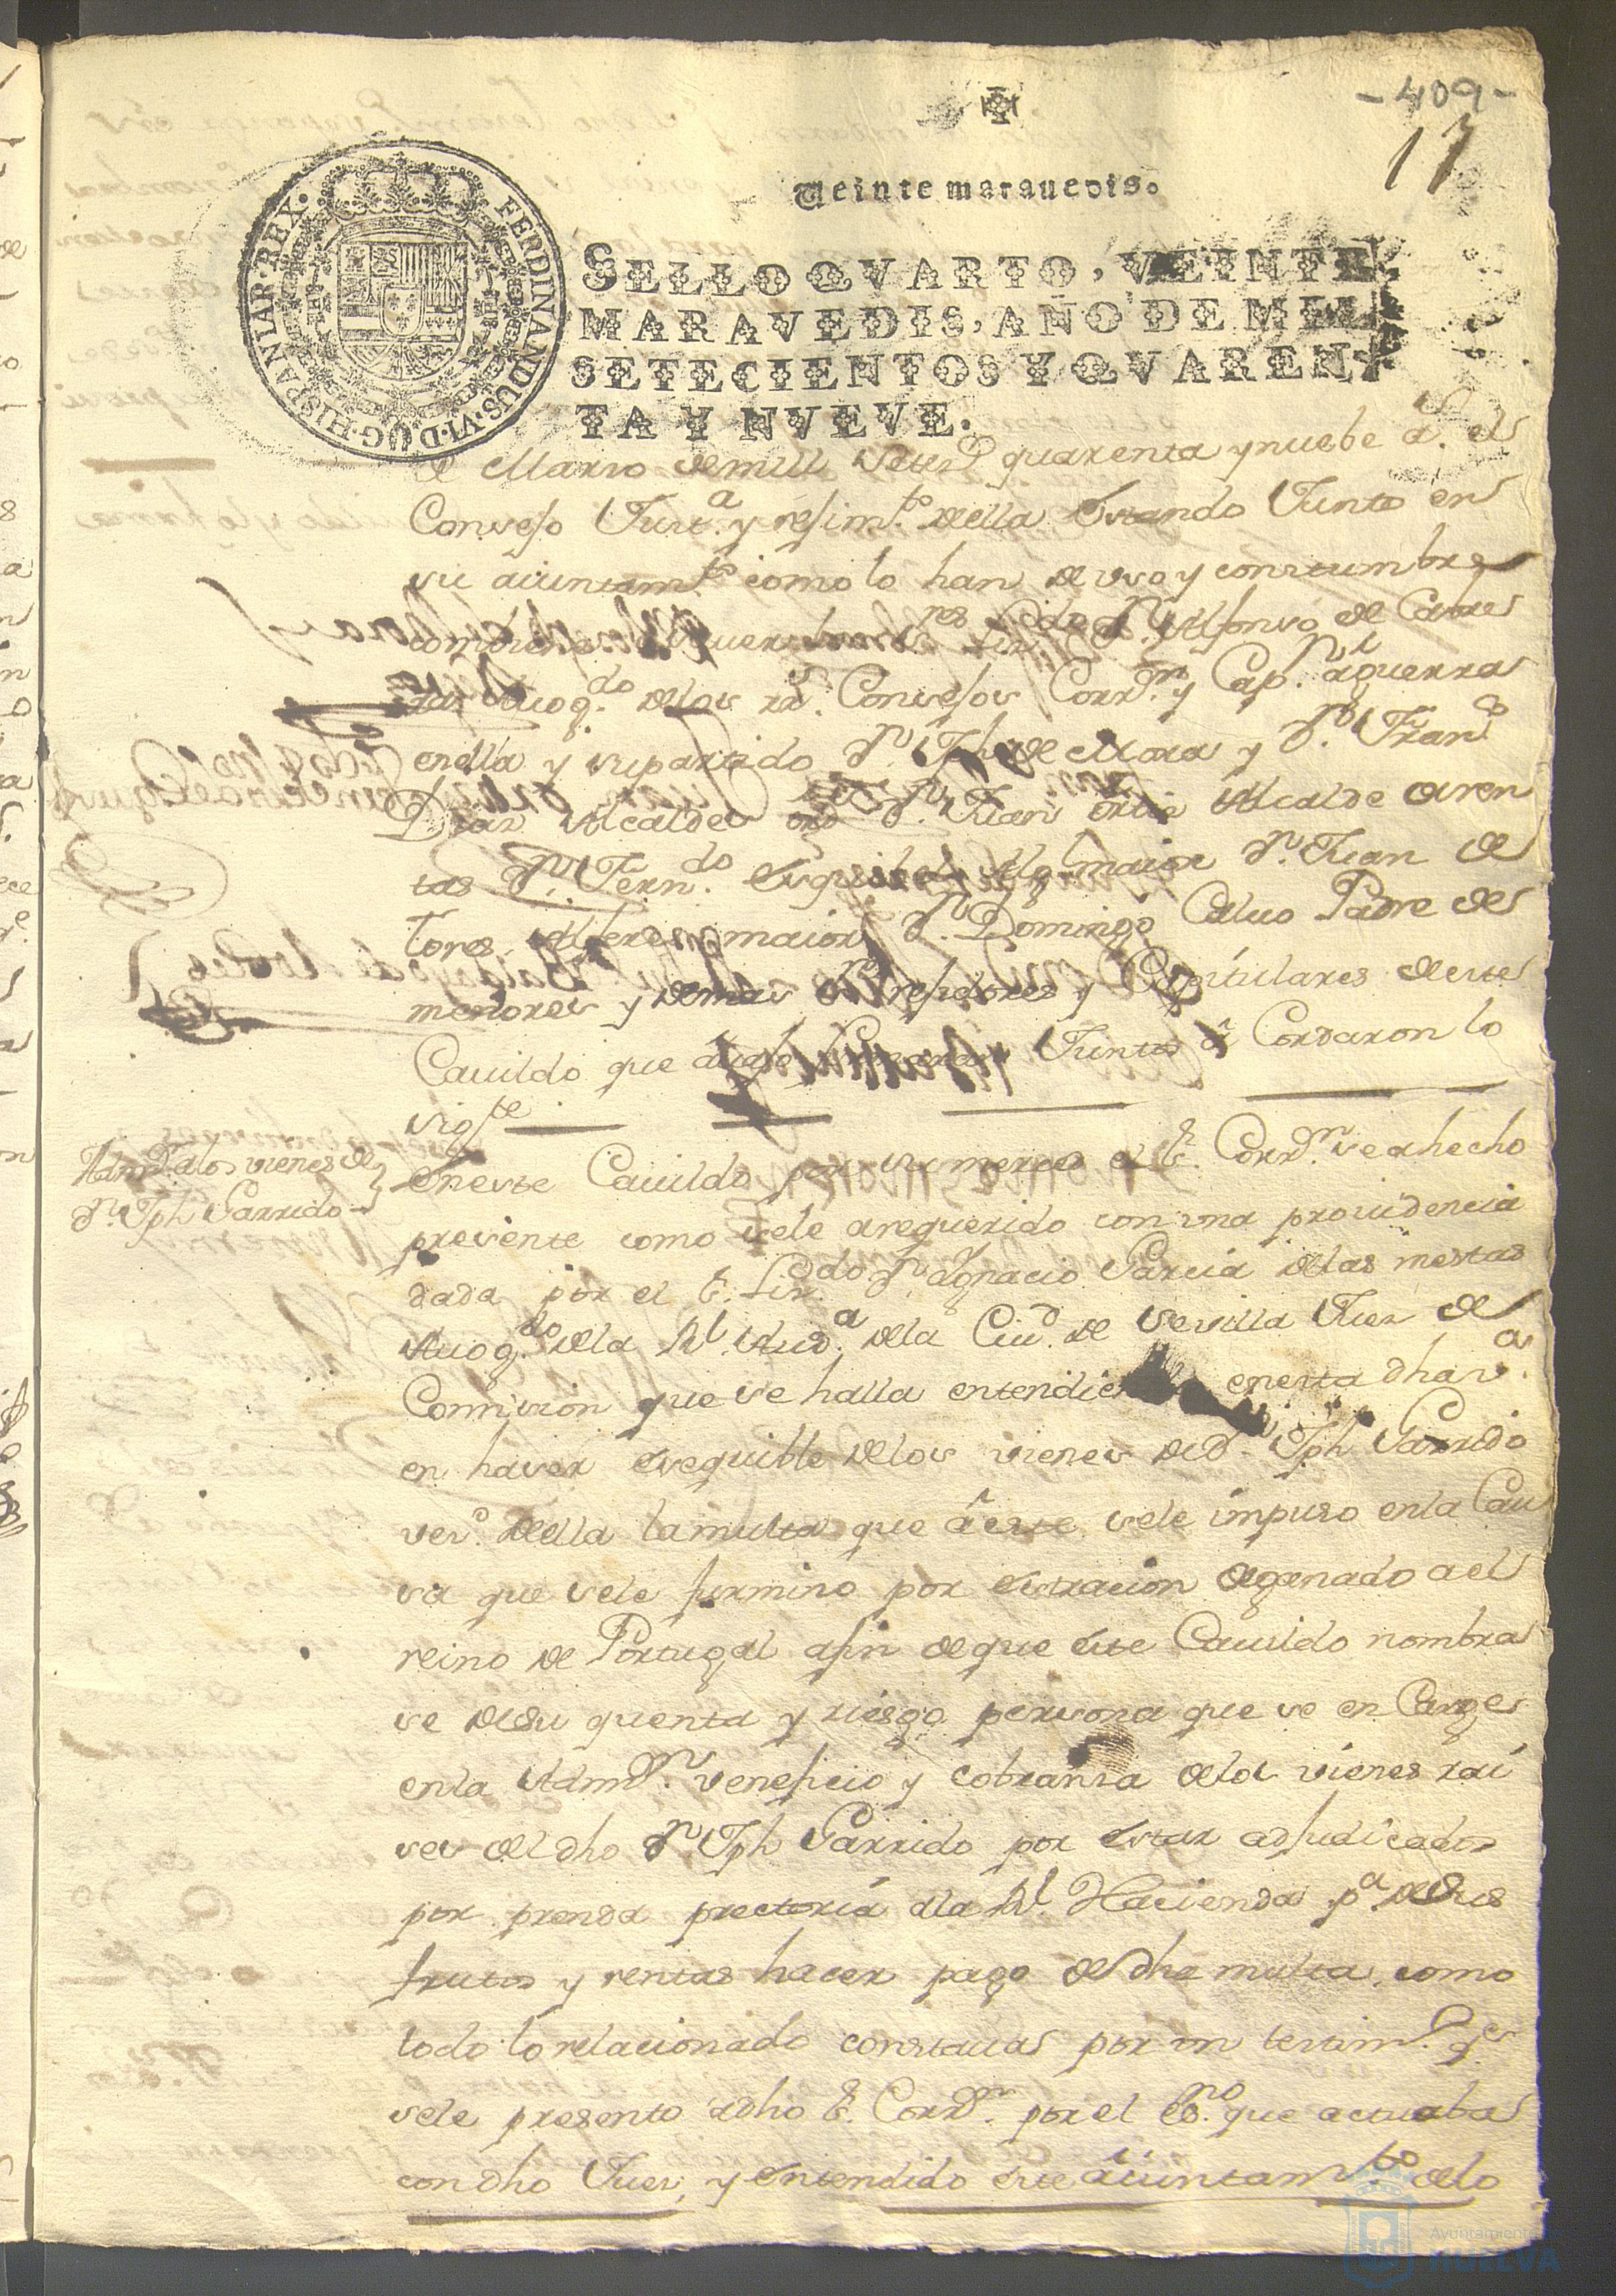 -409-
17
Veinte marauedis.
HISPANIAR·REX· FERDINANDUS·VI·D·G·
SELLO QVARTO, VEINTE
MARAVEDIS, AÑO DE MIL
SETECIENTOS Y QVAREN
TA Y NVEVE.
de Marzo de mill Setez.s quarenta y nuebe a.s el
Consejo Just.a y rejim.to della Estando Junto en
su aiuntam.to como lo han de uso y constumbre
combiene a sauer los S.res Liz.do D.n Alfonso de
Auog.do delos R.s Consejos Corr.or y Cap.n aguerra
enella y supartido D.n Jph de Mora y D.n Fran.co
Diaz Alcaldes ord.s D.n Juan ortiz Alcalde
D.n Fern.do Esquibel Alg.l maior D.n Juan de
Tores Alferez maior D.n Domingo Caluo Padre de
menores y demas rejidores y Capitulares deste
Cauildo que Juntos a Cordaron lo
sig.te
Adm.on alos vienes de
D.n Jph Garrido
Eneste Cauildo por su merced el S.r Corr.or se a hecho
presente como sele a requerido con una prouidencia
dada por el S.r Liz.do D.n Ygnacio Garcia delas mestas
Auog.do dela R.l Aud.a dela Ciu.d de Sevilla Juez de
Comision que se halla entendie enesta dha v.a
en haser exequible delos vienes de D.n Jph Garrido
ves.o della la multa que a este sele impuso enla Cau
sa que sele furmino por estracion de ganado a el
reino de Portugal afin de que Este Cauildo nombra
se desu quenta y riesgo persona que se en Cargue
enla Adm.on veneficio y cobransa delos vienes rai
ses del dho D.n Jph Garrido por estar adjudicados
por prenda pretoria ala R.l Hacienda p.a de sus
frutos y rentas hacer pago de dha multa, como
todo lo relacionado constaua por un testim.o q.e
sele presento a dho S.r Corr.or por el Es.no que actuaba
con dho Juez, y entendido este aiuntam.to delo
Ayuntamiento
HUELVA